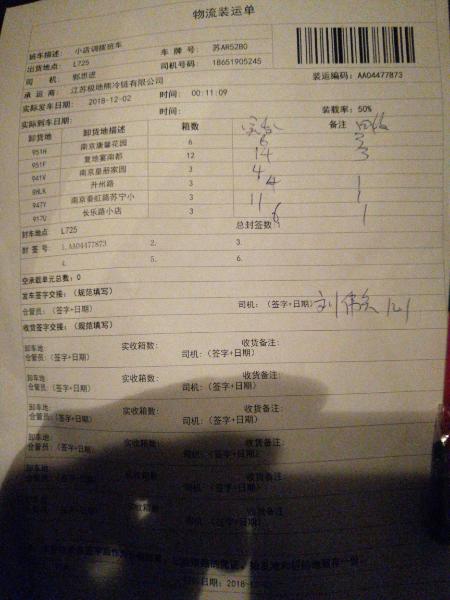 物流装运单
班车描述: 小店调拨班车 车 牌 号: 苏AR52B0
出货地点: L725 司机号码: 18651905245
司 机: 郭思进
承 运 商: 江苏极地熊冷链有限公司 装运编码: AA04477873
实际发车日期: 2018-12-02 时间: 00:11:09
实际到车日期: 时间: 装载率: 50%
卸货地 卸货地描述 箱数 实收 备注 回收
951H 南京康馨花园 6 6 3
951F 复地宴南都 12 14 3
941W 南京皇册家园 3 4
升州路 3 4 1
947Y 南京秦虹路苏宁小 3 11 1
917U 长乐路小店 3 6 1
封车地点 L725 总封签数:
封 签 号: 1.AA04477873 2. 3.
4. 5. 6.
空承载单元总数: 0
发车签字交接: (规范填写)
仓管员: (签字+日期) 司机: (签字+日期)
收货签字交接: (规范填写)
卸车地: 实收箱数: 收货备注:
仓管员: (签字+日期) 司机: (签字+日期)
卸车地: 实收箱数: 收货备注:
仓管员: (签字+日期) 司机: (签字+日期)
卸车地: 实收箱数: 收货备注:
仓管员: (签字+日期) 司机: (签字+日期)
卸车地: 实收箱数: 收货备注:
仓管员: (签字+日期) 司机: (签字+日期)
卸车地: 实收箱数: 收货备注:
仓管员: (签字+日期) 司机: (签字+日期)
卸车地: 实收箱数: 收货备注:
仓管员: (签字+日期) 司机: (签字+日期)
日期: 2018-12